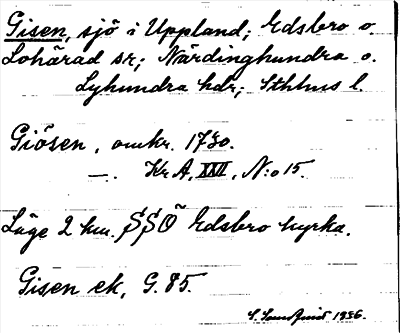 Gisen, sjö i Uppland; Edsbro o.
Lohärad sr; Närdinghundra o.
Lyhundra hdr; Sthlms l.
Giösen, omkr. 1730.
—. Kr A, XXII, N:o 15.
Läge 2 km. SSÖ Edsbro kyrka.
Gisen ek, G. 85.
S. Sundquist 1936.